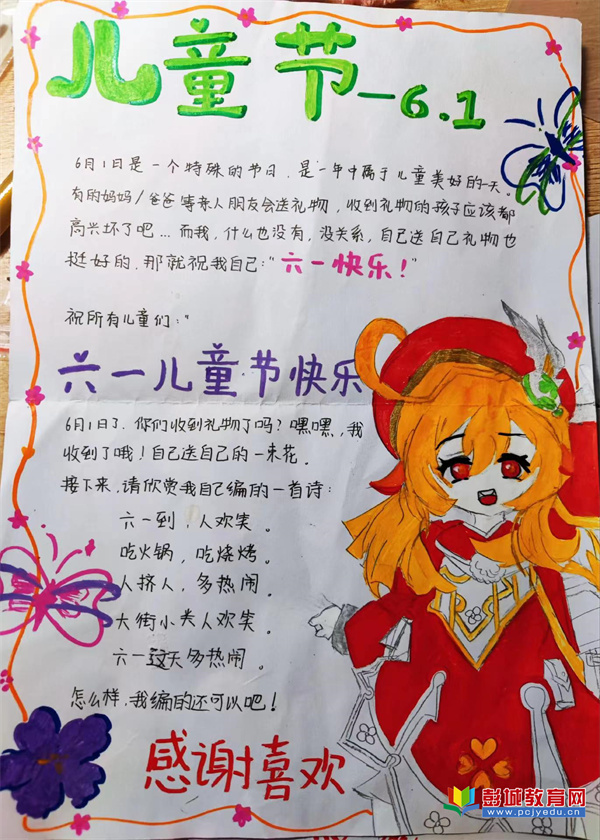 儿童节-6.1
6月1日是一个特殊的节日，是一年中属于儿童美好的一天。
有的妈妈/爸爸等亲人朋友会送礼物，收到礼物的孩子应该都
高兴坏了吧...而我，什么也没有，没关系，自己送自己礼物也
挺好的，那就祝我自己："六一快乐！"
祝所有儿童们："
六一儿童节快乐
6月1日了，你们收到礼物了吗？嘿嘿，我
收到了哦！自己送自己的一束花。
接下来，请欣赏我自己编的一首诗：
六一到，人欢笑。
吃火锅，吃烧烤。
人挤人，多热闹。
大街小巷人欢笑。
六一这天多热闹。
怎么样，我编的还可以吧！
感谢喜欢
彭城教育网
www.pcjyedu.cn